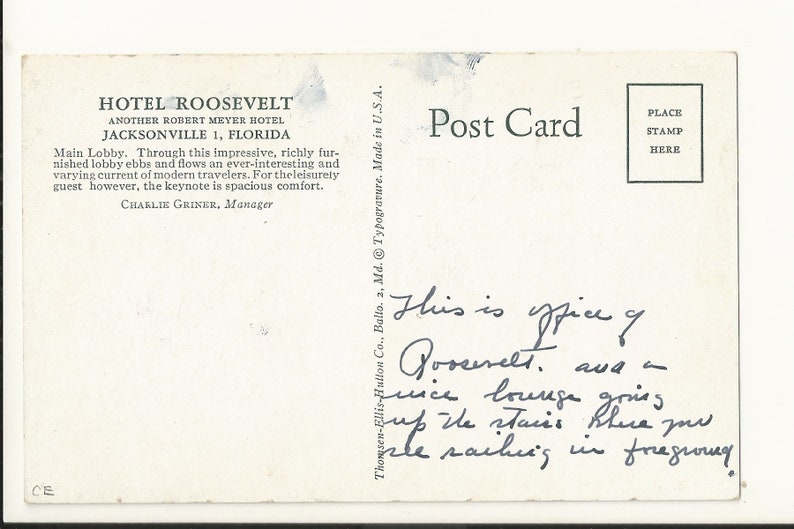 HOTEL ROOSEVELT
ANOTHER ROBERT MEYER HOTEL
JACKSONVILLE 1, FLORIDA
Main Lobby. Through this impressive, richly fur-
nished lobby ebbs and flows an ever-interesting and
varying current of modern travelers. For the leisurely
guest however, the keynote is spacious comfort.
CHARLIE GRINER, Manager
Thomsen-Ellis-Hutton Co., Balto. 2, Md. © Typogravure. Made in U.S.A.
Post Card
PLACE
STAMP
HERE
This is office of
Roosevelt. and a
nice lounge going
up the stairs where you
see railing in foreground.
CE